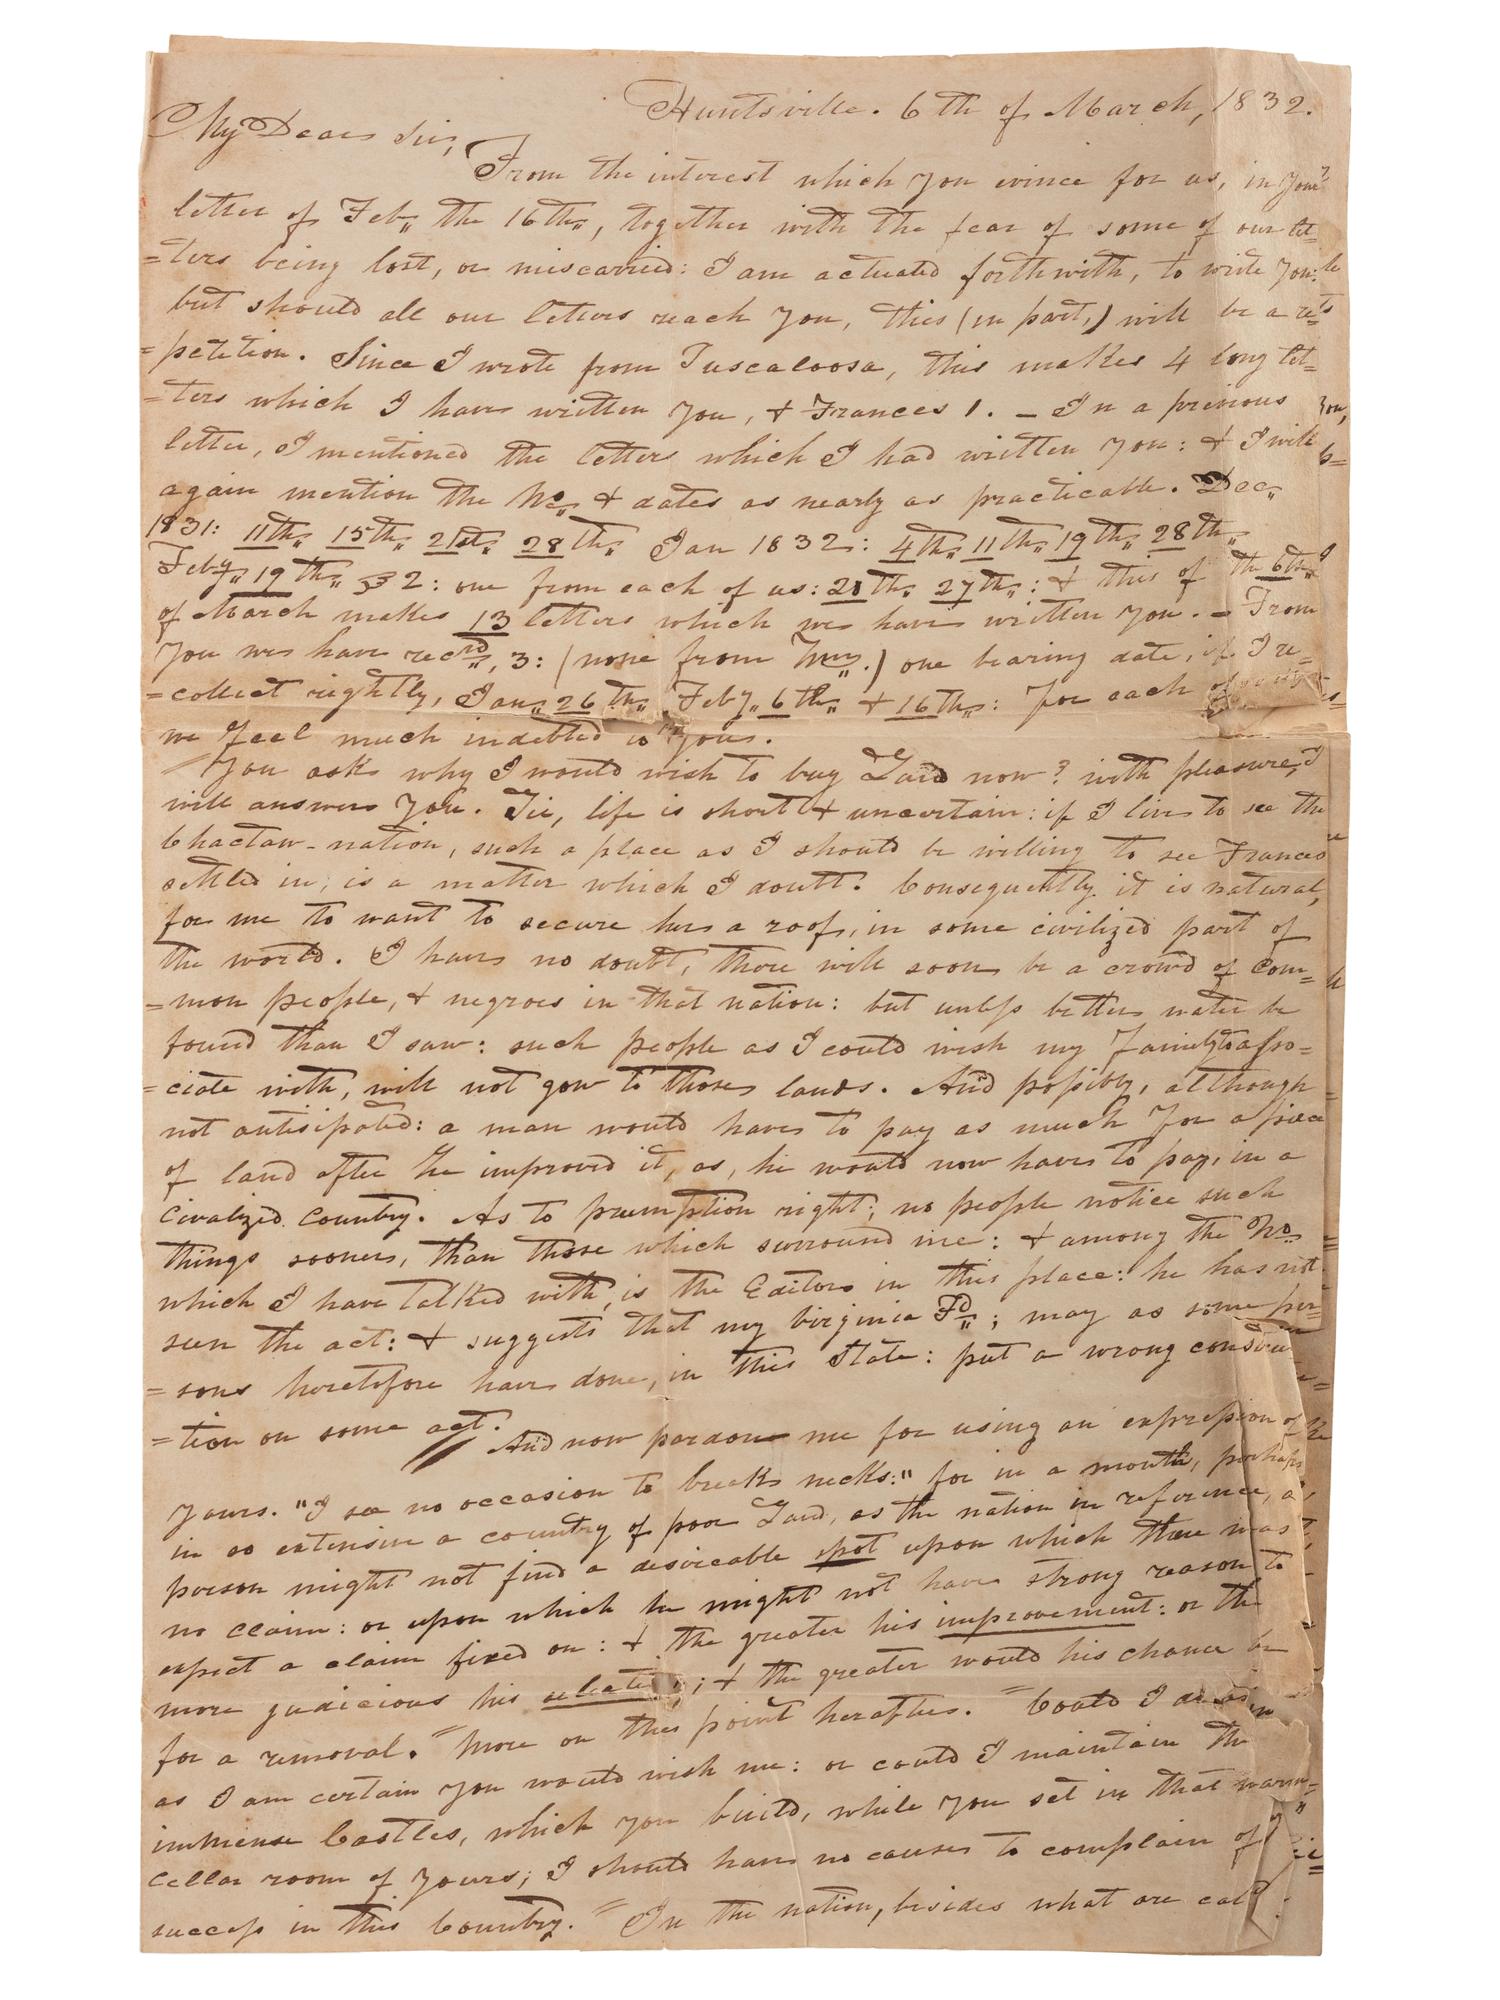 Huntsville. 6th of March, 1832.
My Dear Sir,
From the interest which you evince for us, in your
letter of Feb,, the 16th,,, together with the fear of some of our let-
=ters being lost, or miscarried: I am actuated forthwith, to write you:
but should all our letters reach you, this (in part,) will be a re=
=petition. Since I wrote from Tuscaloosa, this makes 4 long let=
=ters which I have written you, & Frances 1. - In a previous
letter, I mentioned the letters which I had written you: & I will
again mention the No,, & dates as nearly as practicable. Dec,,
1831: 11th,, 15th,, 21st,, 28th,, Jan 1832: 4th,, 11th,, 19th,, 28th,,
Feby,, 19th,, 32: one from each of us: 20th,, 27th,,: & this of the 6th,,
of March makes 13 letters which we have written you. - From
you we have recd,,, 3: (none from Wm,,.) one bearing date, if I re=
=collect rightly, Jan,, 26th,, Feby,, 6th,, & 16th,,: For each of
we feel much indebted to you.
You ask why I would wish to buy Land now? with pleasure, I
will answer you. Sir, life is short & uncertain: if I live to see the
Chactaw-nation, such a place as I should be willing to see Frances
settled in, is a matter which I doubt. Consequently it is natural,
for me to want to secure her a roof, in some civilized part of
the world. I have no doubt, there will soon be a crowd of com=
=mon people, & negroes in that nation: but unless better water be
found than I saw: such people as I could wish my Family to asso=
=ciate with, will not gow to those lands. And possibly, although
not antisipated: a man would have to pay as much for a piece
of land after he improved it, as, he would now have to pay, in a
civalized country. As to preemption right; no people notice such
things sooner, than those which surround me: & among the No,,
which I have talked with, is the Editor in this place: he has not
seen the act: & suggests that my virginia Fd,,; may as some per=
=sons heretofore have done, in this State: put a wrong construc
=tion on some act.
And now pardon me for using an expression of
yours. "I see no occasion to break necks:" for in a month, perhaps
in so extensive a country of poor Land, as the nation in reference, a
person might not find a desireable spot upon which there was
no claim: or upon which he might not have strong reason to
expect a claim fixed on: & the greater his improvement: or the
more judicious his ; & the greater would his chance be
for a removal. = More on this point herafter. = Could I
as I am certain you would wish me: or could I maintain the
immense Castles, which you build, while you set in that warm
cellar room of yours; I should have no causes to complain of
success in this Country. = In the nation, besides what are